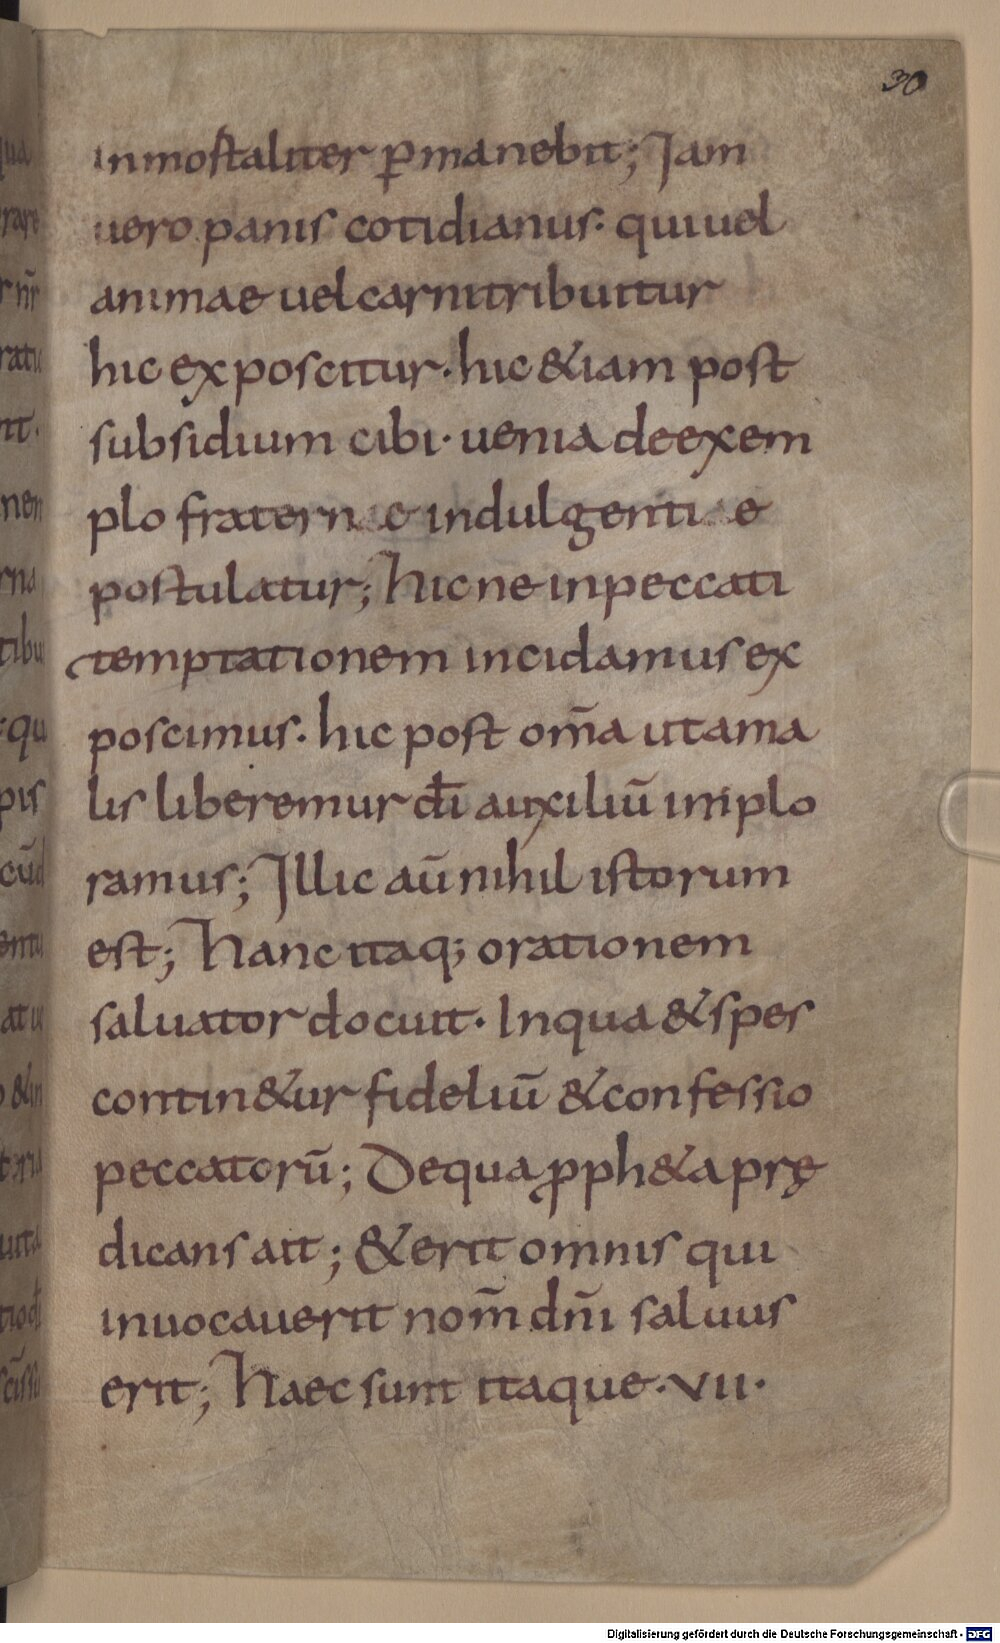 30
inmostaliter ꝑmanebit; Iam
uero panis cotidianus· qui uel
animae uel carni tribuitur
hic exposcitur· hic &iam post
subsidium cibi· uenia de exem
plo fraternae indulgentiae
postulatur; Hic ne in peccati
temptationem incidamus ex
poscimus· hic post om̄a ut a ma
lis liberemur dī auxiliū implo
ramus; Illic aū nihil istorum
est; Hanc itaq; orationem
saluator docuit· In qua & spes
contin&ur fideliū & confessio
peccatorū; De qua ꝓph&a prę
dicans ait; & erit omnis qui
inuocauerit nom̄ dn̄i saluus
erit; Haec sunt itaque· VII·
Digitalisierung gefördert durch die Deutsche Forschungsgemeinschaft - DFG